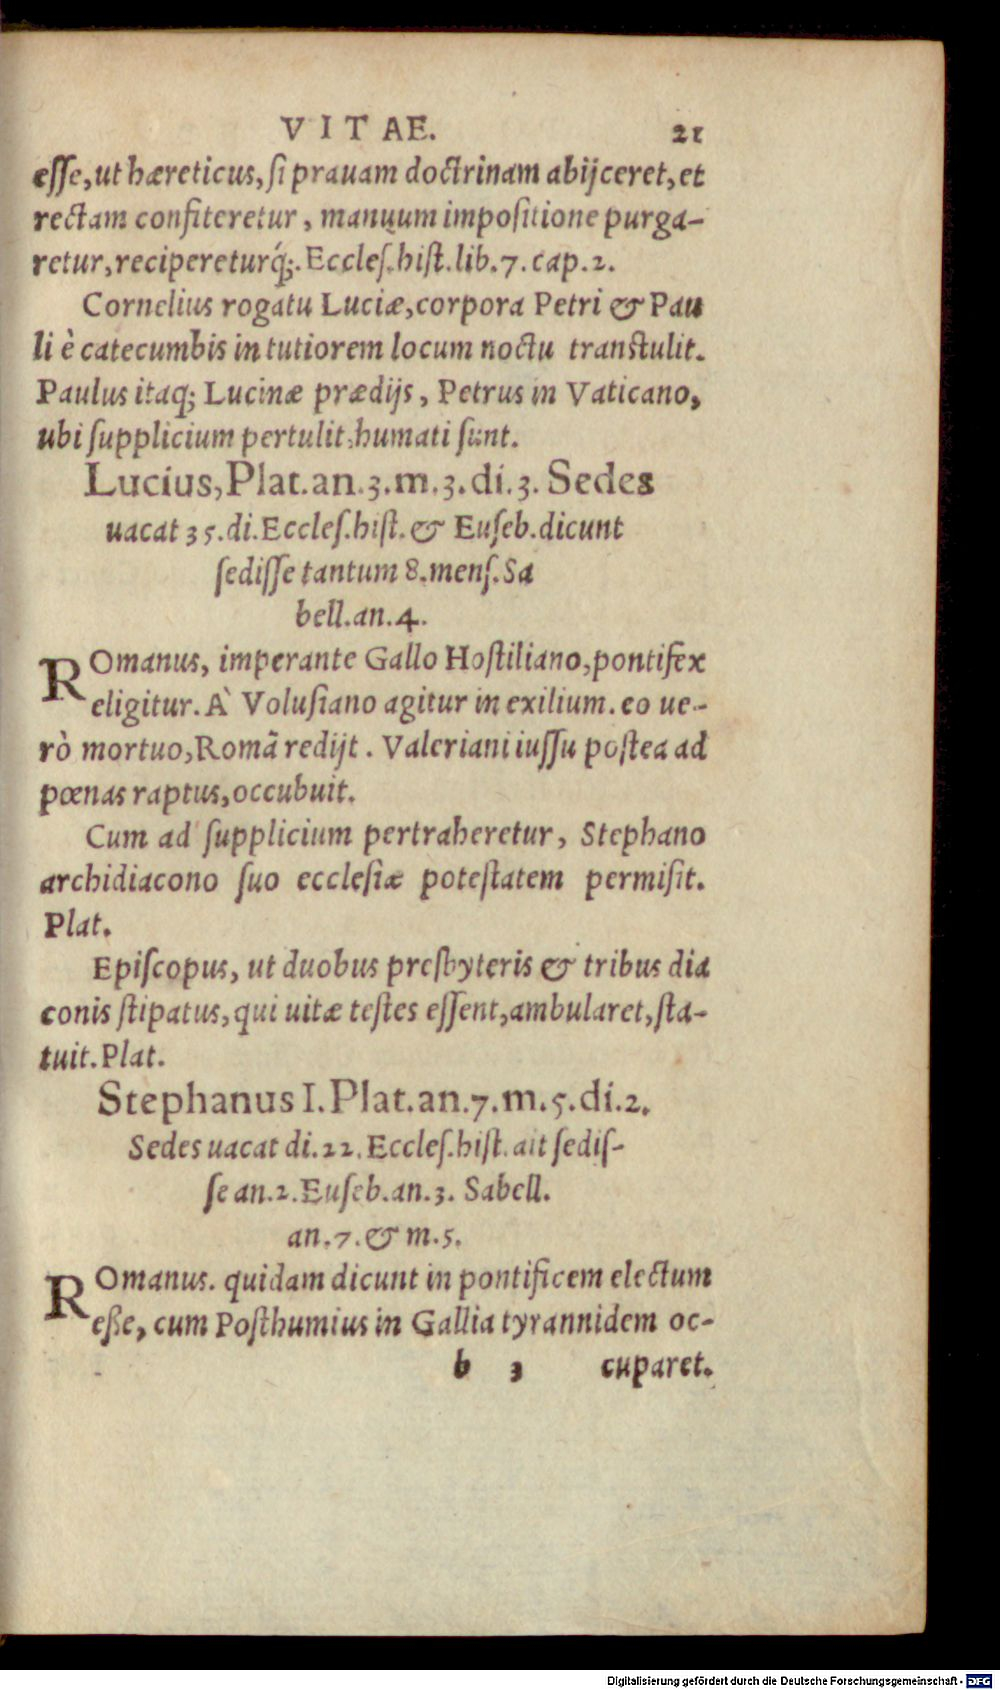 VITAE. 21
esse, ut hæreticus, si prauam doctrinam abijceret, et
rectam confiteretur, manuum impositione purga-
retur, recipereturq́;. Eccles. hist. lib. 7. cap. 2.
Cornelius rogatu Luciæ, corpora Petri & Pau
li è catecumbis in tutiorem locum noctu transtulit.
Paulus itaq; Lucinæ prædijs, Petrus in Vaticano,
ubi supplicium pertulit, humati sunt.
Lucius, Plat. an. 3. m. 3. di. 3. Sedes
uacat 35. di. Eccles. hist. & Euseb. dicunt
sedisse tantum 8. mens. Sa
bell. an. 4.
ROmanus, imperante Gallo Hostiliano, pontifex
eligitur. À Volusiano agitur in exilium. eo ue-
rò mortuo, Romã redijt. Valeriani iussu postea ad
pœnas raptus, occubuit.
Cum ad supplicium pertraheretur, Stephano
archidiacono suo ecclesiæ potestatem permisit.
Plat.
Episcopus, ut duobus presbyteris & tribus dia
conis stipatus, qui uitæ testes essent, ambularet, sta-
tuit. Plat.
Stephanus I. Plat. an. 7. m. 5. di. 2.
Sedes uacat di. 22. Eccles. hist. ait sedis-
se an. 2. Euseb. an. 3. Sabell.
an. 7. & m. 5.
ROmanus. quidam dicunt in pontificem electum
eße, cum Posthumius in Gallia tyrannidem oc-
b 3 cuparet.
Digitalisierung gefördert durch die Deutsche Forschungsgemeinschaft - DFG